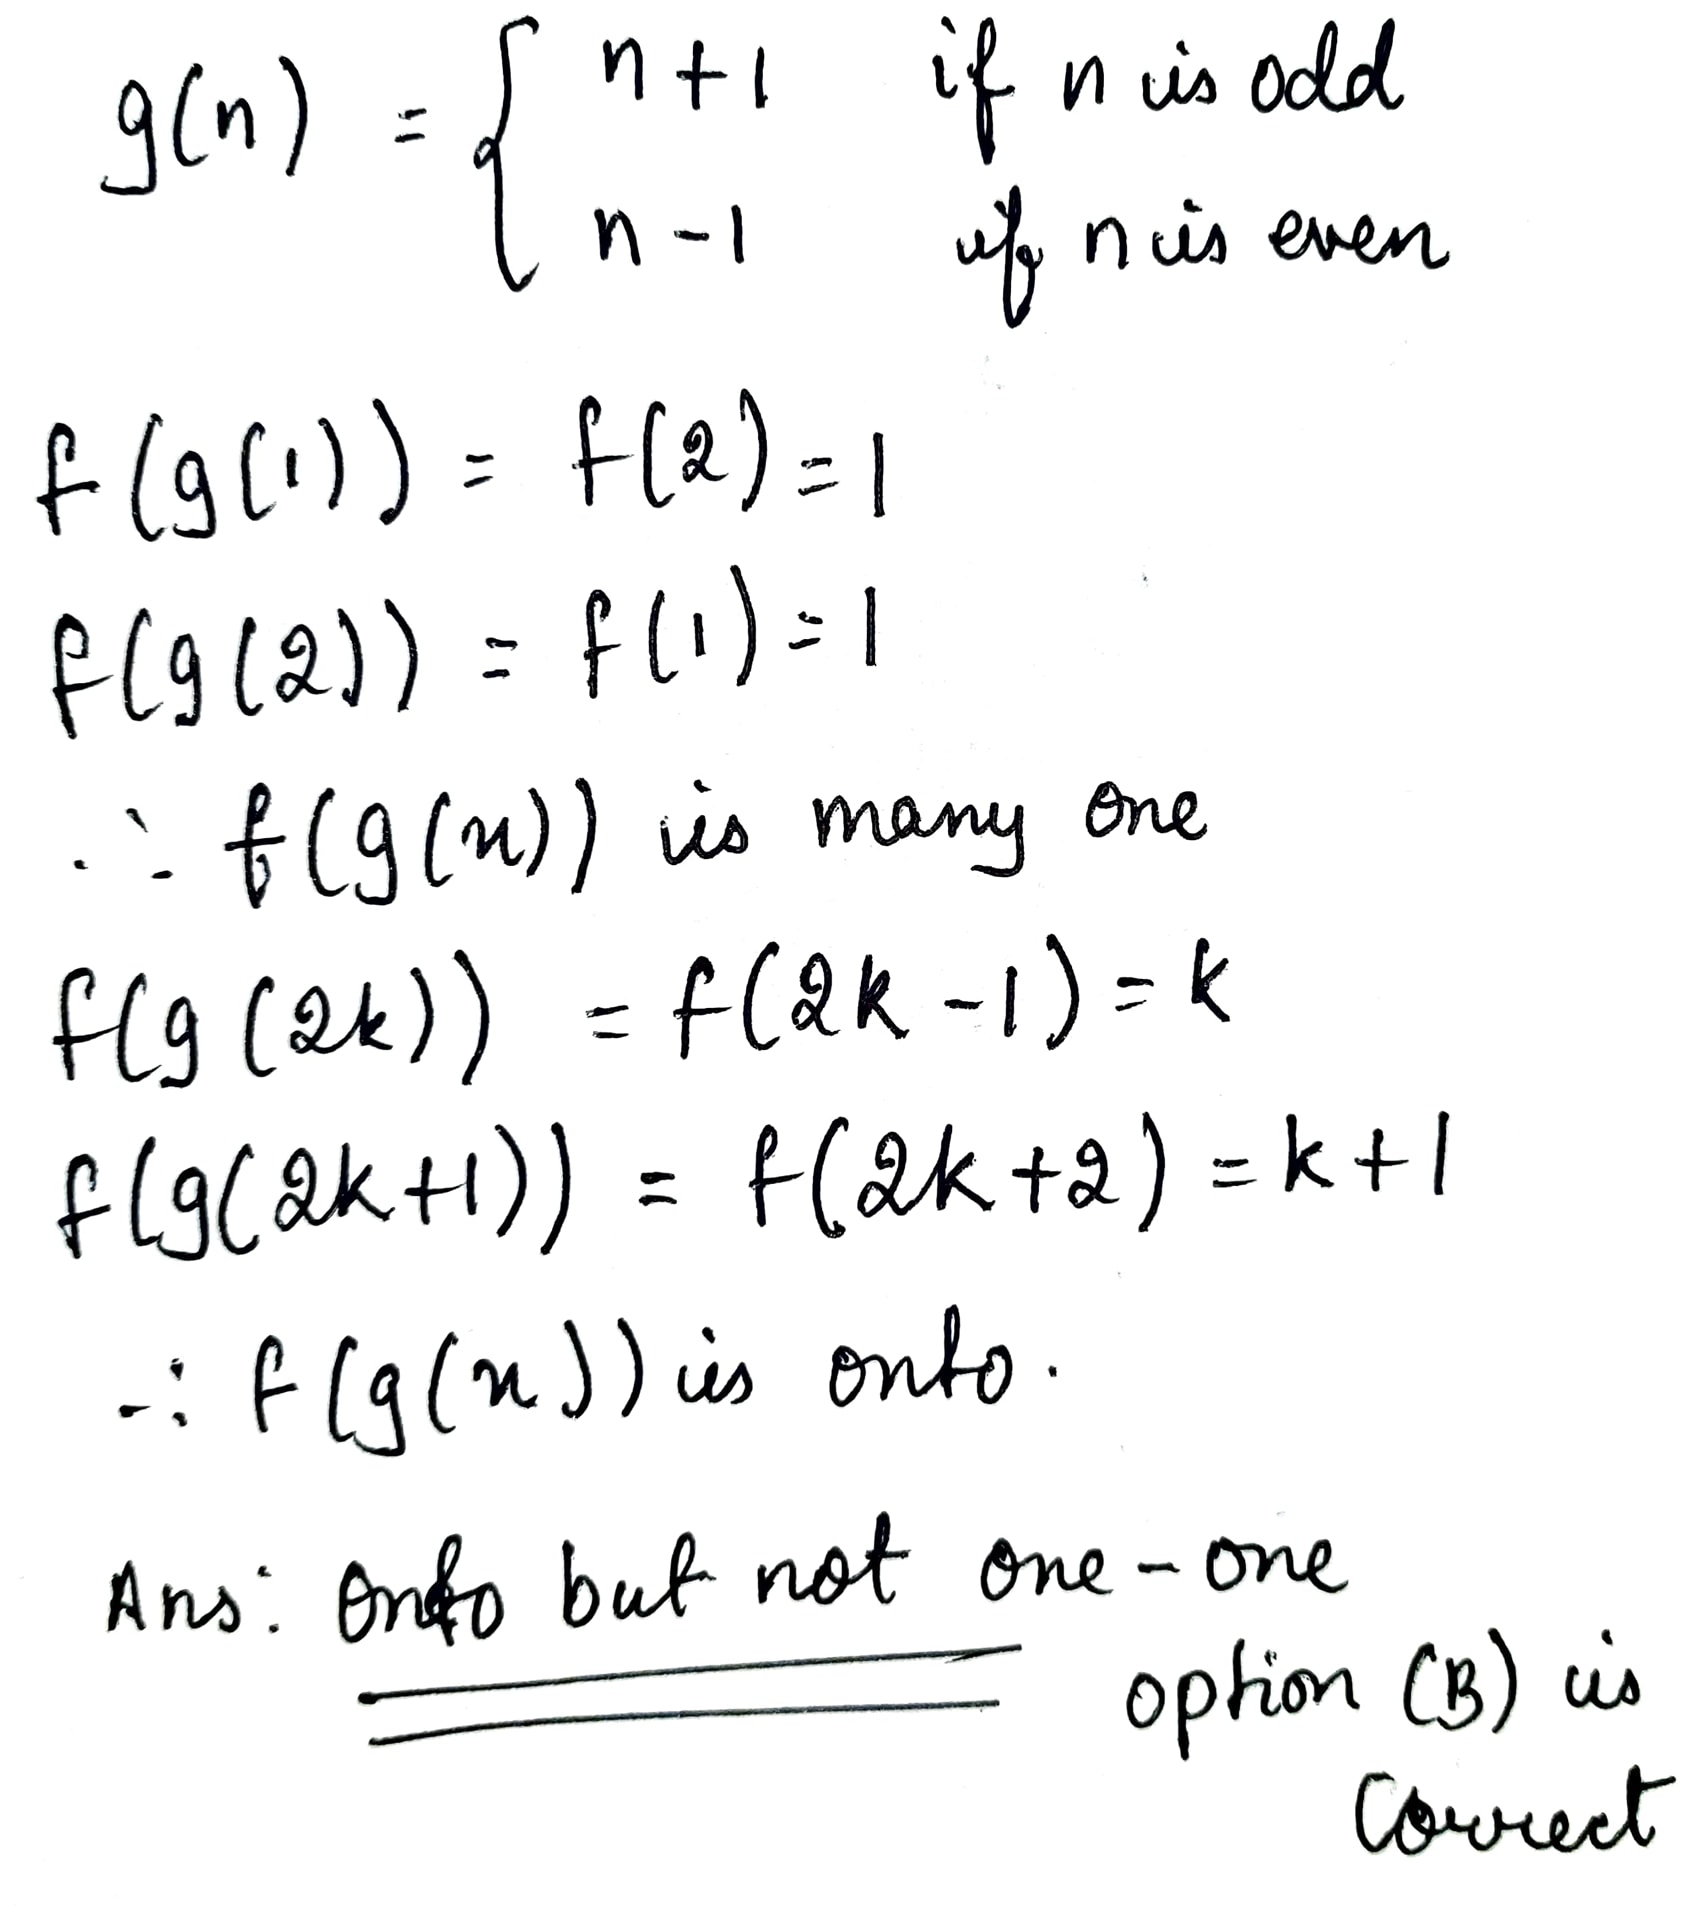 g(n) = { n+1 if n is odd
n-1 if n is even
f(g(1)) = f(2) = 1
f(g(2)) = f(1) = 1
∴ f(g(n)) is many one
f(g(2k)) = f(2k-1) = k
f(g(2k+1)) = f(2k+2) = k+1
∴ f(g(n)) is onto.
Ans: Onto but not one-one
option (B) is
Correct